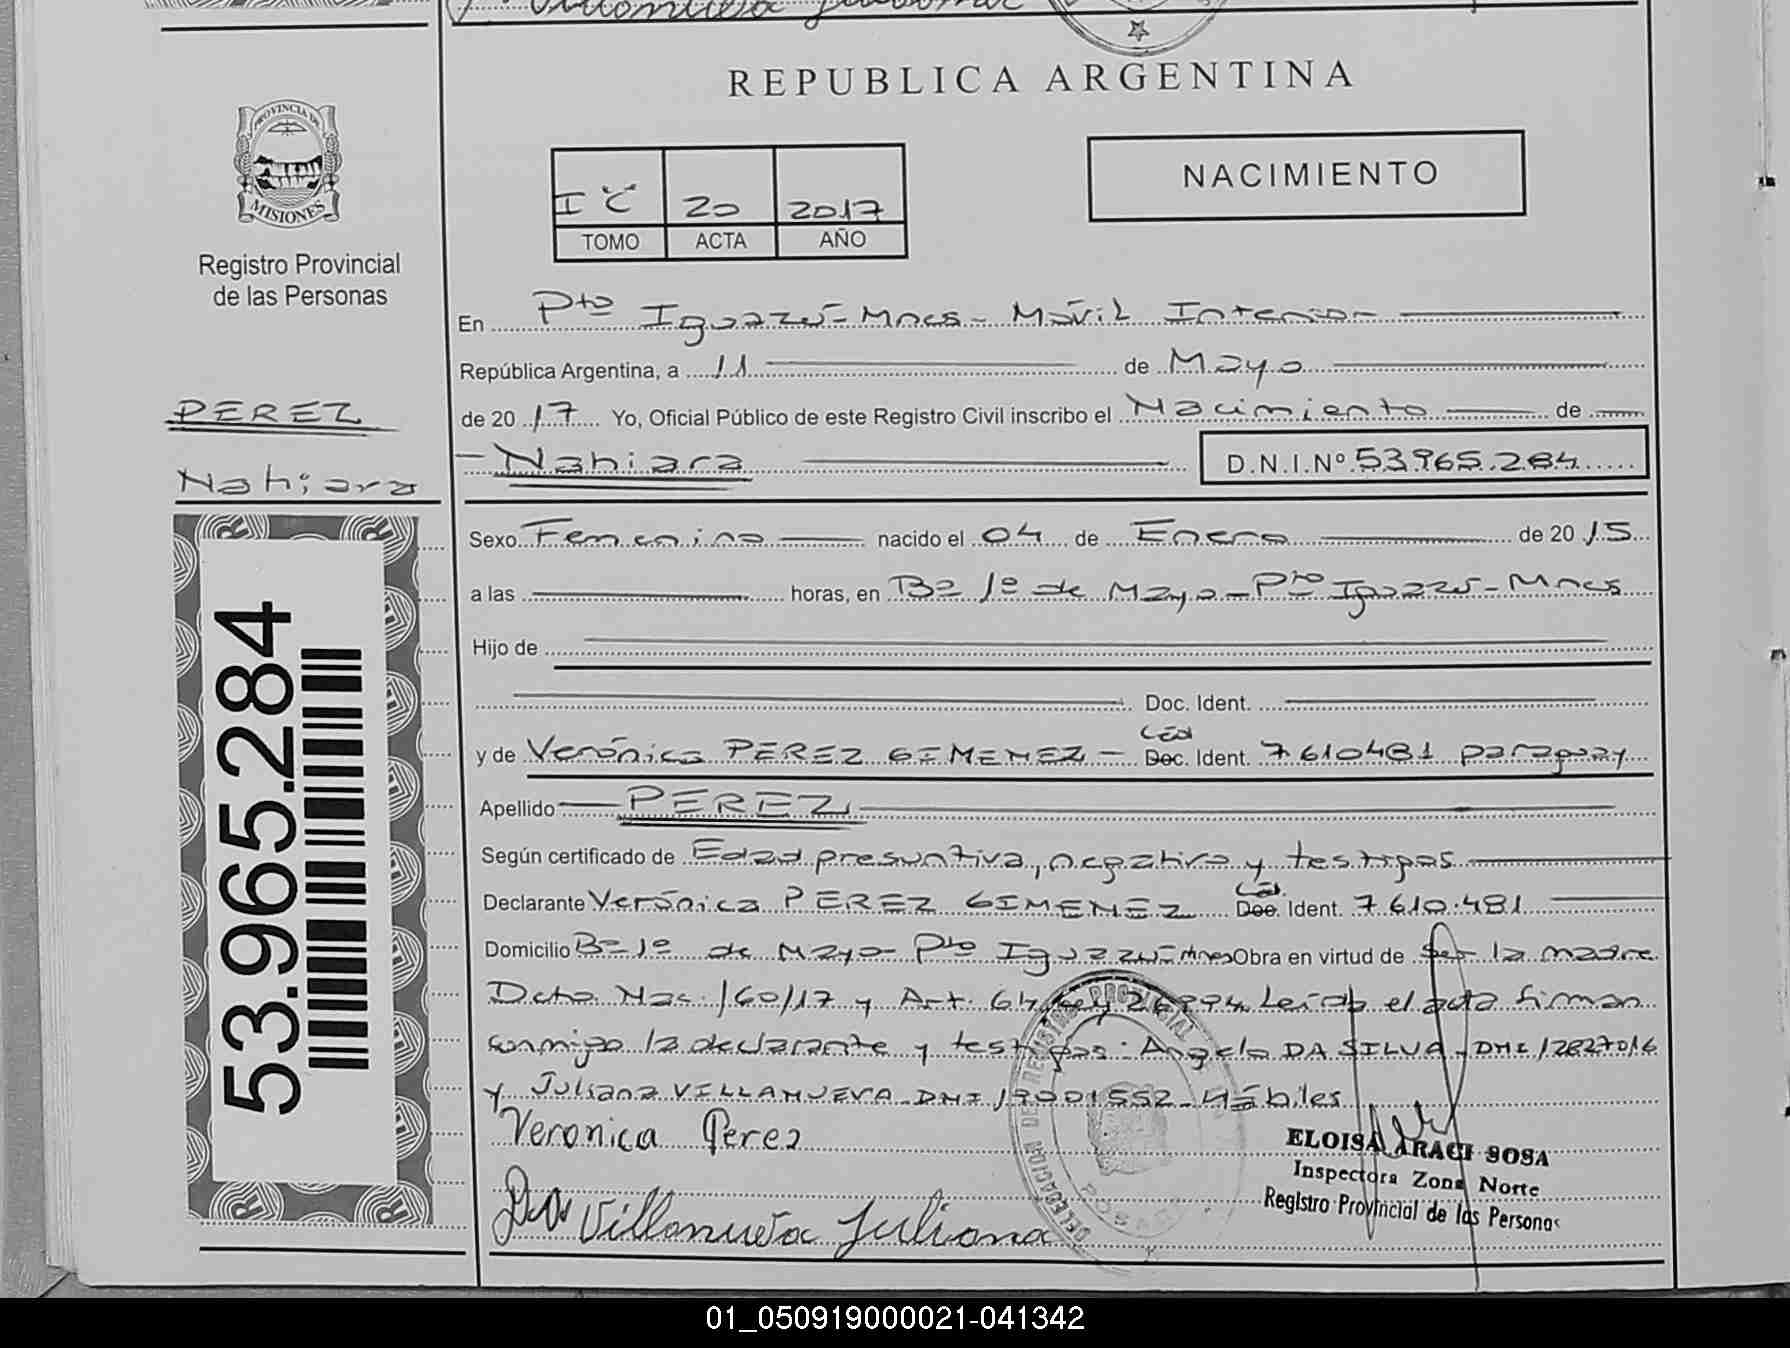 Villanueva Juliana
REPUBLICA ARGENTINA
PROVINCIA DE
MISIONES
Registro Provincial
de las Personas
NACIMIENTO
20 2017
TOMO ACTA AÑO
En Pto Iguazú - Mnes - Móvil Interior
República Argentina, a 11 de Mayo
de 2017 Yo, Oficial Público de este Registro Civil inscribo el Nacimiento de
Nahiara D.N.I.Nº 53.965.284
PEREZ
Nahiara
53.965.284
Sexo Femenino nacido el 04 de Enero de 2015
a las horas, en Bº 1º de Mayo - Pto Iguazú - Mnes
Hijo de
Doc. Ident.
Céd
y de Verónica PEREZ GIMENEZ - Doc. Ident. 7610481 paraguay
Apellido PEREZ
Según certificado de Edad presuntiva, negativo y testigos
Céd.
Declarante Verónica PEREZ GIMENEZ Doc. Ident. 7.610.481
Domicilio Bº 1º de Mayo - Pto Iguazú - Mnes Obra en virtud de ser la madre
Dcto Nac. 160/17 y Art. 64 Ley 26994 Leída el acta firman
conmigo la declarante y testigos: Angela DA SILVA - DNI 12827016
y Juliana VILLANUEVA - DNI 19001552 - Hábiles
Veronica Perez
Villanueva Juliana
DELEGACION DE REGISTRO PROVINCIAL
POSADAS
ELOISA ARACI SOSA
Inspectora Zona Norte
Registro Provincial de las Personas
01_050919000021-041342